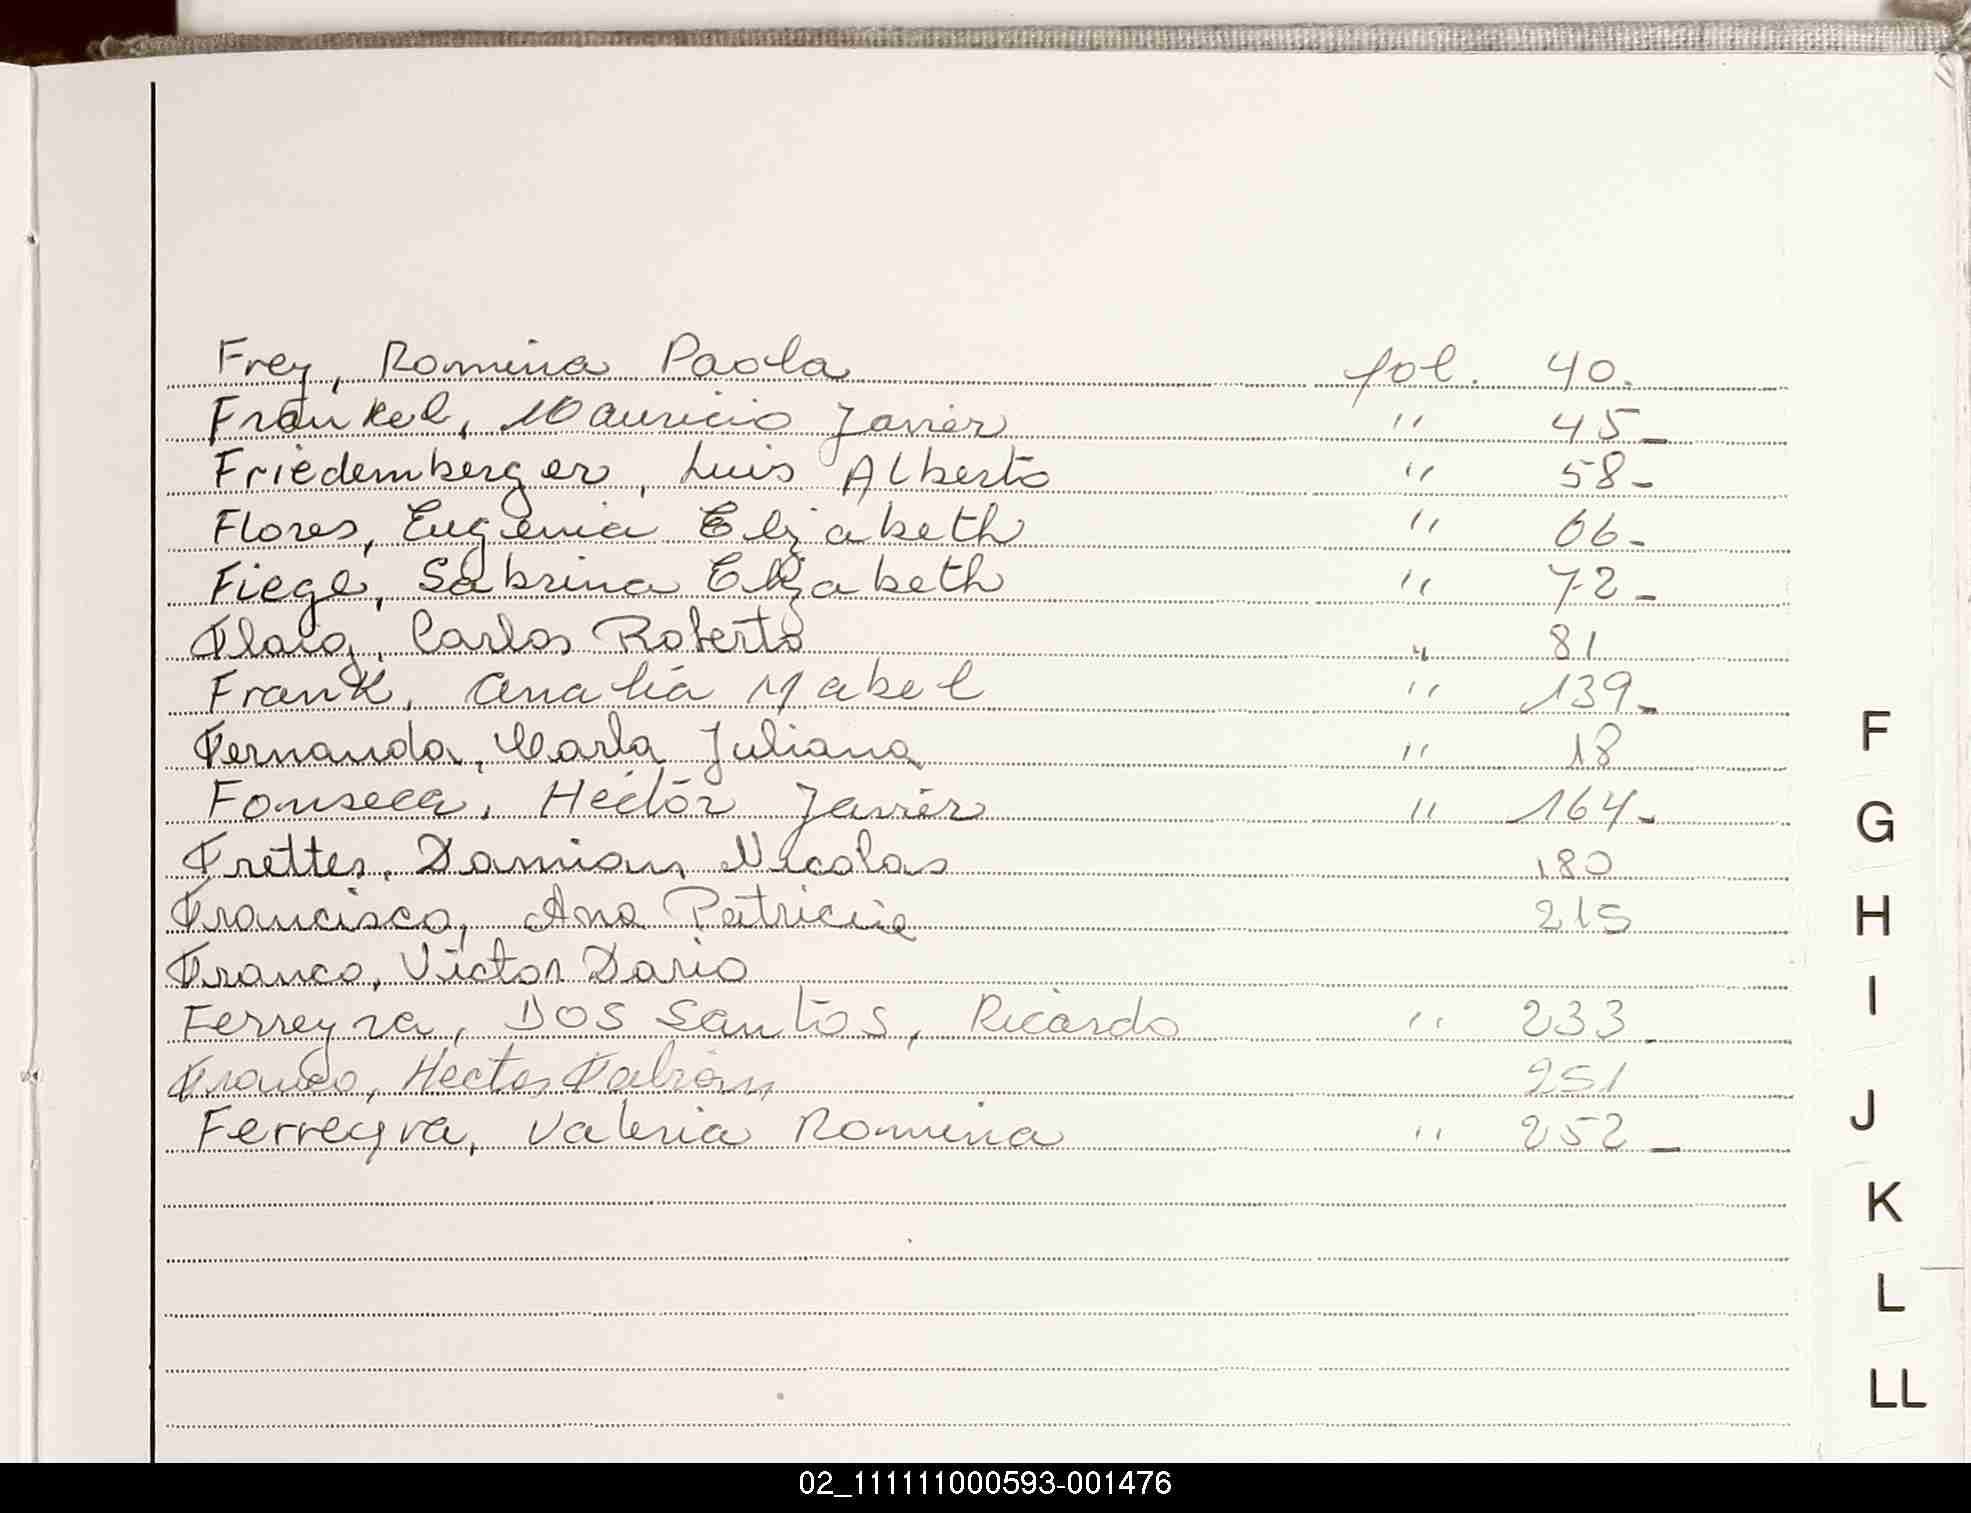 Frey, Romina Paola fol. 40.
Frankel, Mauricio Javier " 45_
Friedemberger, Luis Alberto " 58-
Flores, Eugenia Elizabeth " 66-
Fiege, Sabrina Elizabeth " 72-
Flaig, Carlos Roberto " 81
Frank, Analia Mabel " 139-
Fernanda, Carla Juliana " 18
Fonseca, Hector Javier " 164-
Frettes, Damian Nicolas 180
Francisco, Ana Patricia 215
Franco, Victor Dario
Ferreyra, Dos Santos, Ricardo " 233_
Franco, Hector Fabian 251
Ferreyra, Valeria Romina " 252_
F
G
H
I
J
K
L
LL
02_111111000593-001476